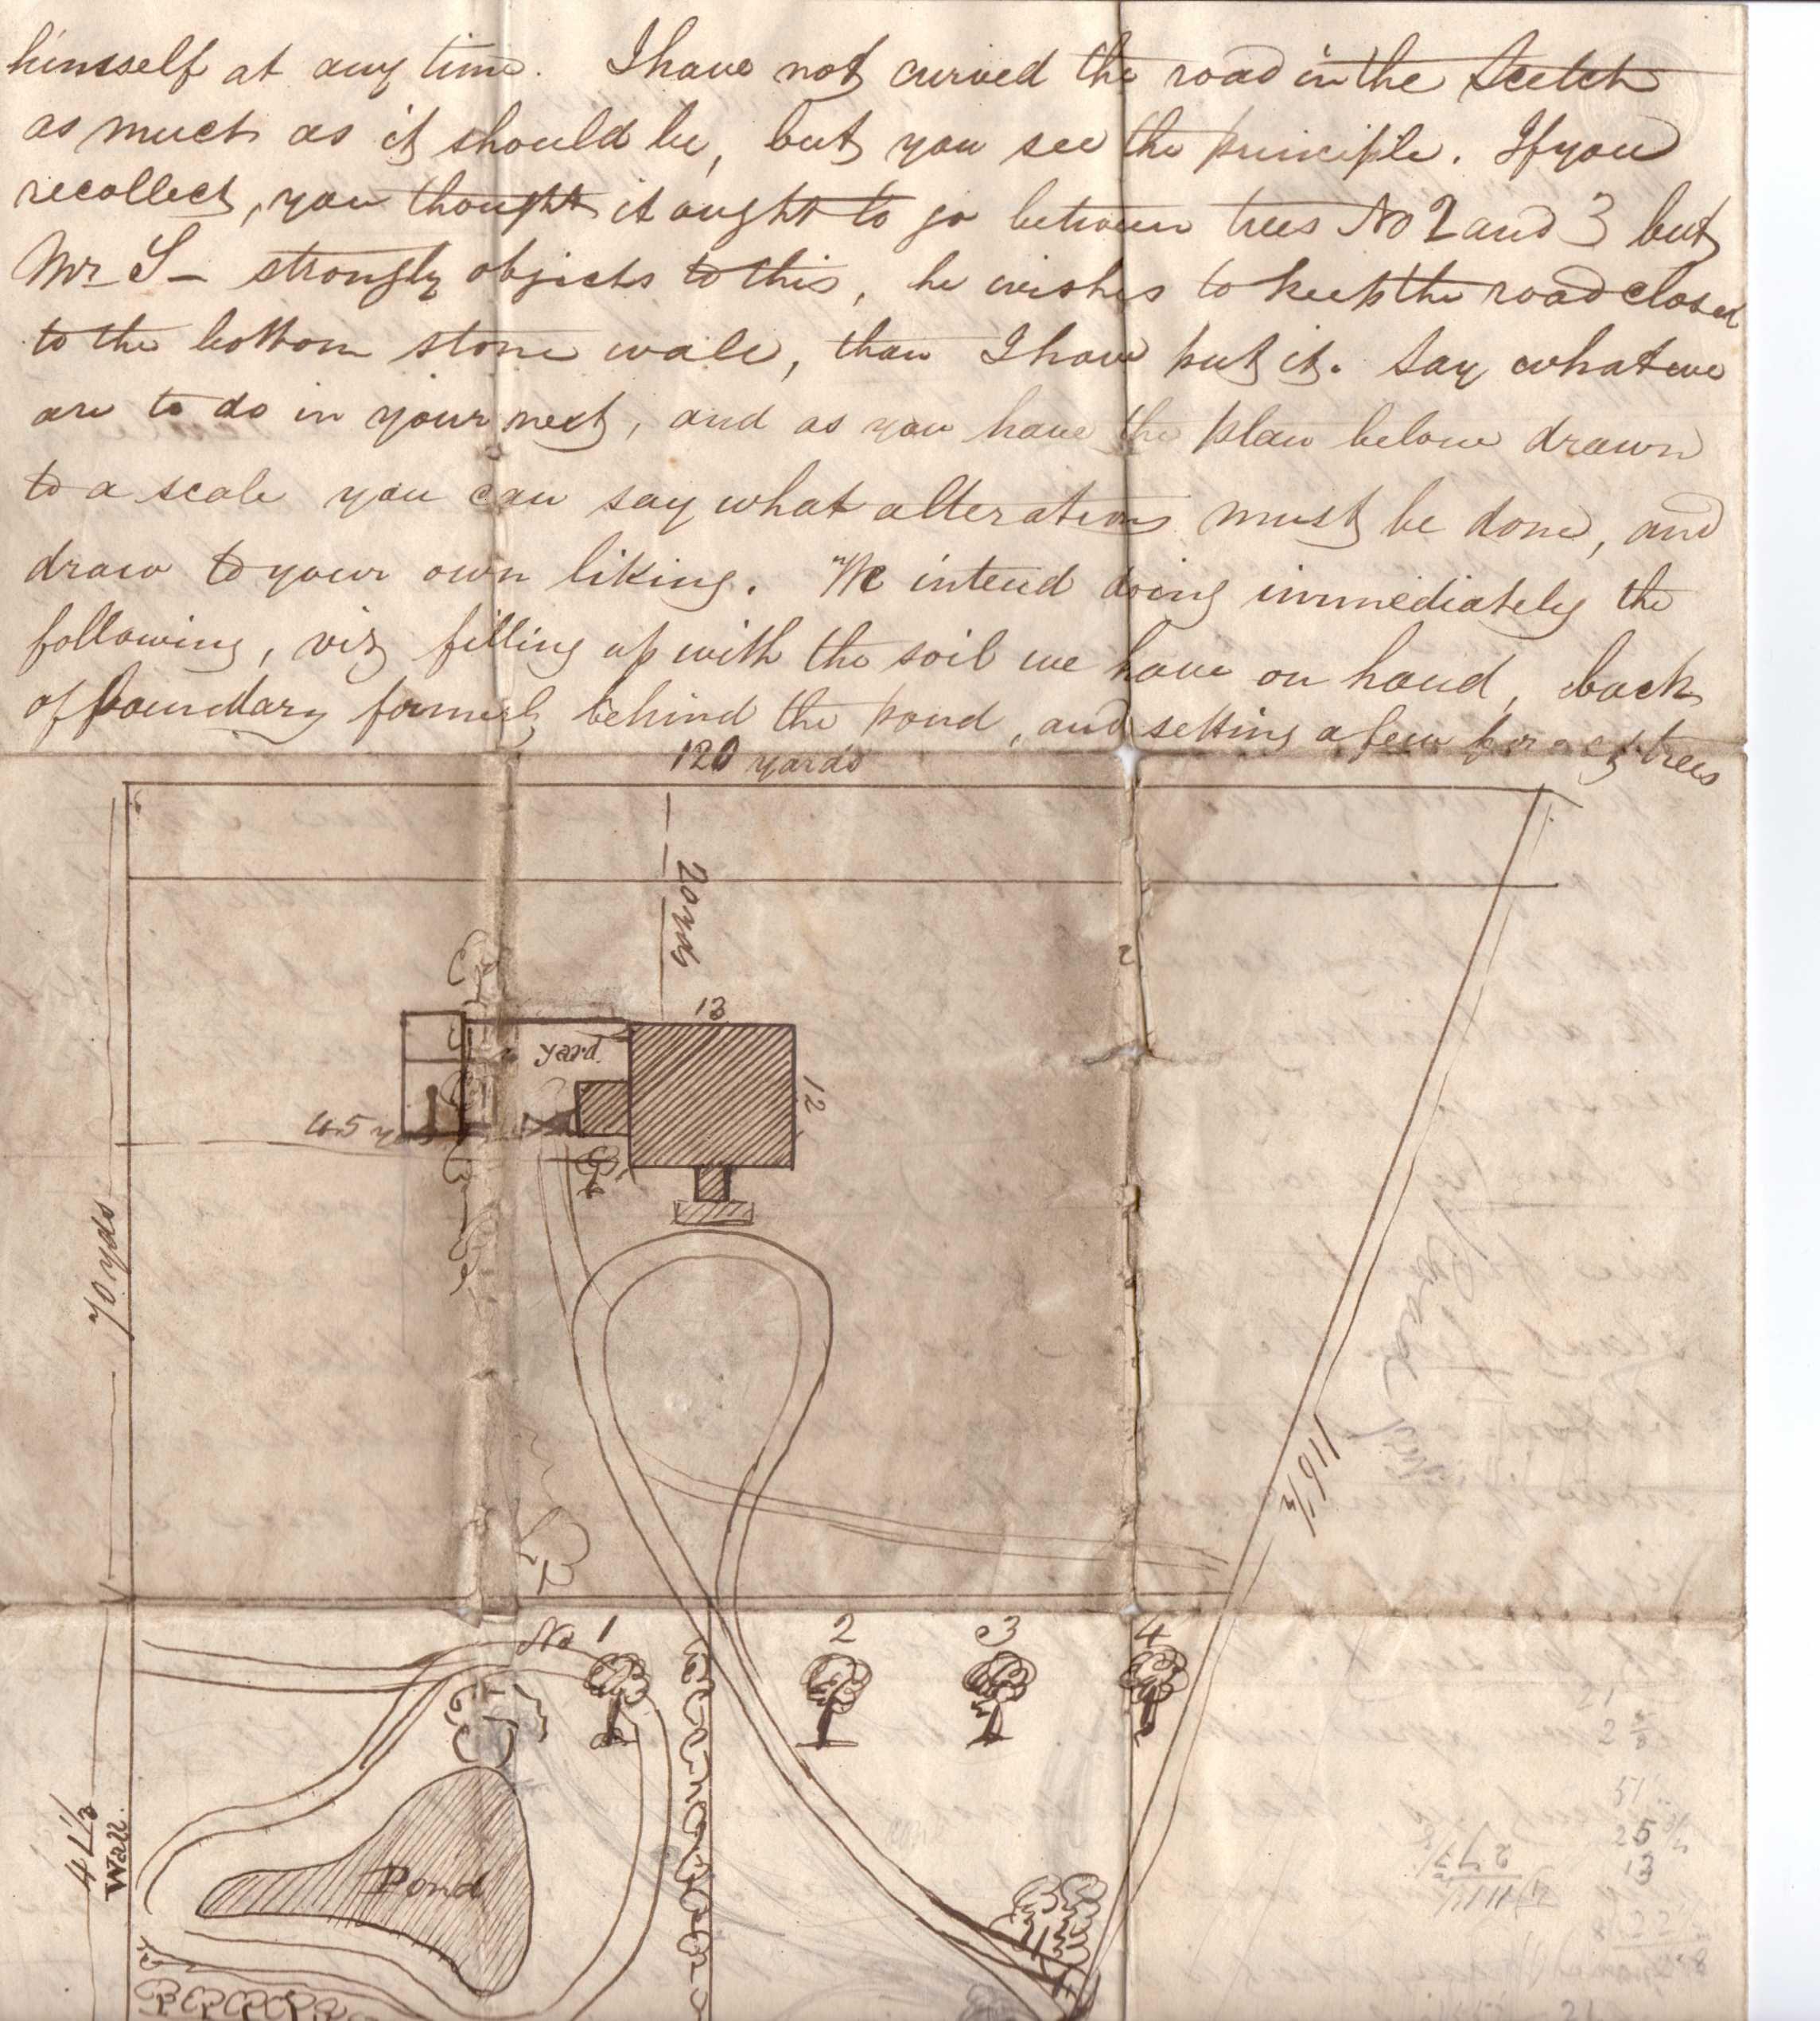 himself at any time. I have not curved the road in the Scetch
as much as it should be, but you see the principle. If you
recollect, you thought it ought to go between trees No 2 and 3 but
Mr S— strongly objects to this, he wishes to keep the road closer
to the bottom stone wall, than I have put it. Say what we
are to do in your next, and as you have the plan below drawn
to a scale you can say what alterations must be done, and
draw to your own liking. We intend doing immediately the
following, viz filling up with the soil we have on hand, back
of boundary formerly behind the pond, and setting a few trees
120 yards
20 yds
13
yard
12
45 y
70 yds
Road
116 1/2
No 1 2 3 4
41 1/3
Wall
Pond
21
2
51
25
13